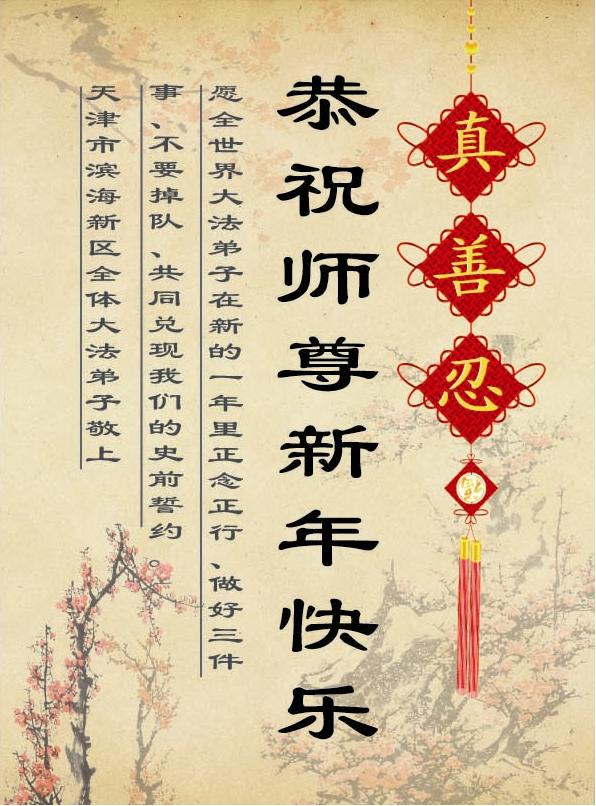 真善忍
恭祝师尊新年快乐
愿全世界大法弟子在新的一年里正念正行、做好三件
事、不要掉队、共同兑现我们的史前誓约。
天津市滨海新区全体大法弟子敬上